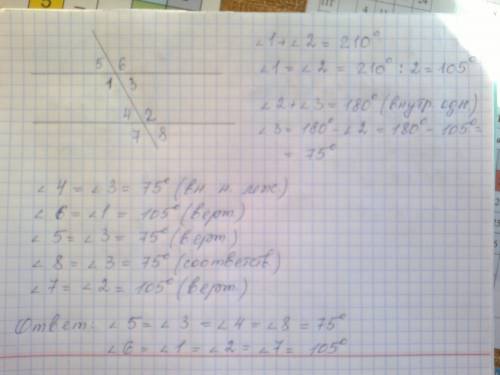 5 6
1 3
4 2
7 8
∠1+∠2 = 210°
∠1 = ∠2 = 210° : 2 = 105°
∠2+∠3 = 180° (внутр. одн)
∠3 = 180° - ∠2 = 180° - 105° =
= 75°
∠4 = ∠3 = 75° (вн. н. леж)
∠6 = ∠1 = 105° (верт)
∠5 = ∠3 = 75° (верт)
∠8 = ∠3 = 75° (соответств)
∠7 = ∠2 = 105° (верт.)
Ответ: ∠5 = ∠3 = ∠4 = ∠8 = 75°
∠6 = ∠1 = ∠2 = ∠7 = 105°